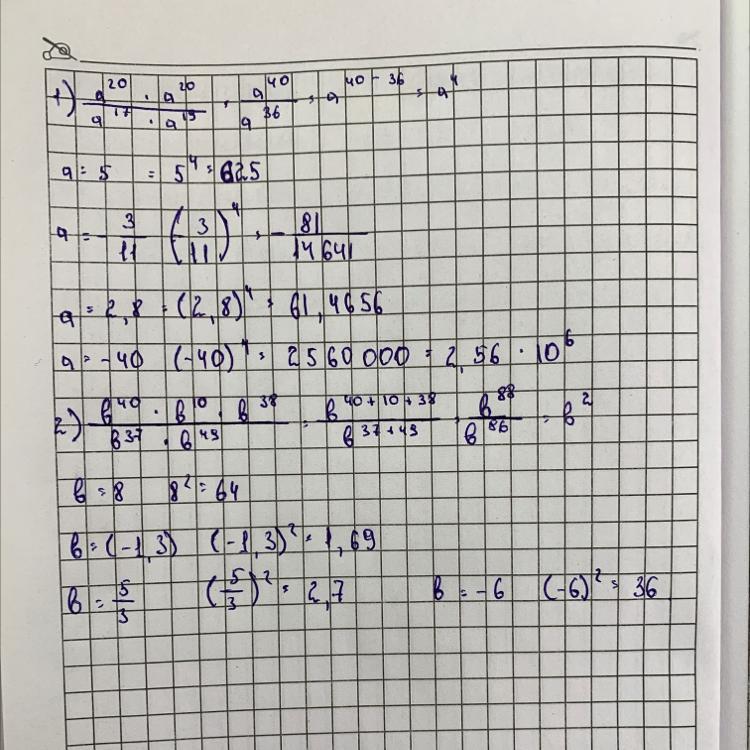 1) (a^20 · a^20)/(a^17 · a^19) = a^40/a^36 = a^(40-36) = a^4
a = 5 = 5^4 = 625
a = -3/11 (-3/11)^4 = -81/14641
a = 2,8 = (2,8)^4 = 61,4656
a = -40 (-40)^4 = 2560000 = 2,56 · 10^6
2) (в^40 · в^10 · в^38)/(в^37 · в^49) = в^(40+10+38)/в^(37+49) = в^88/в^86 = в^2
в = 8 8^2 = 64
в = (-1,3) (-1,3)^2 = 1,69
в = 5/3 (5/3)^2 = 2,7 в = -6 (-6)^2 = 36